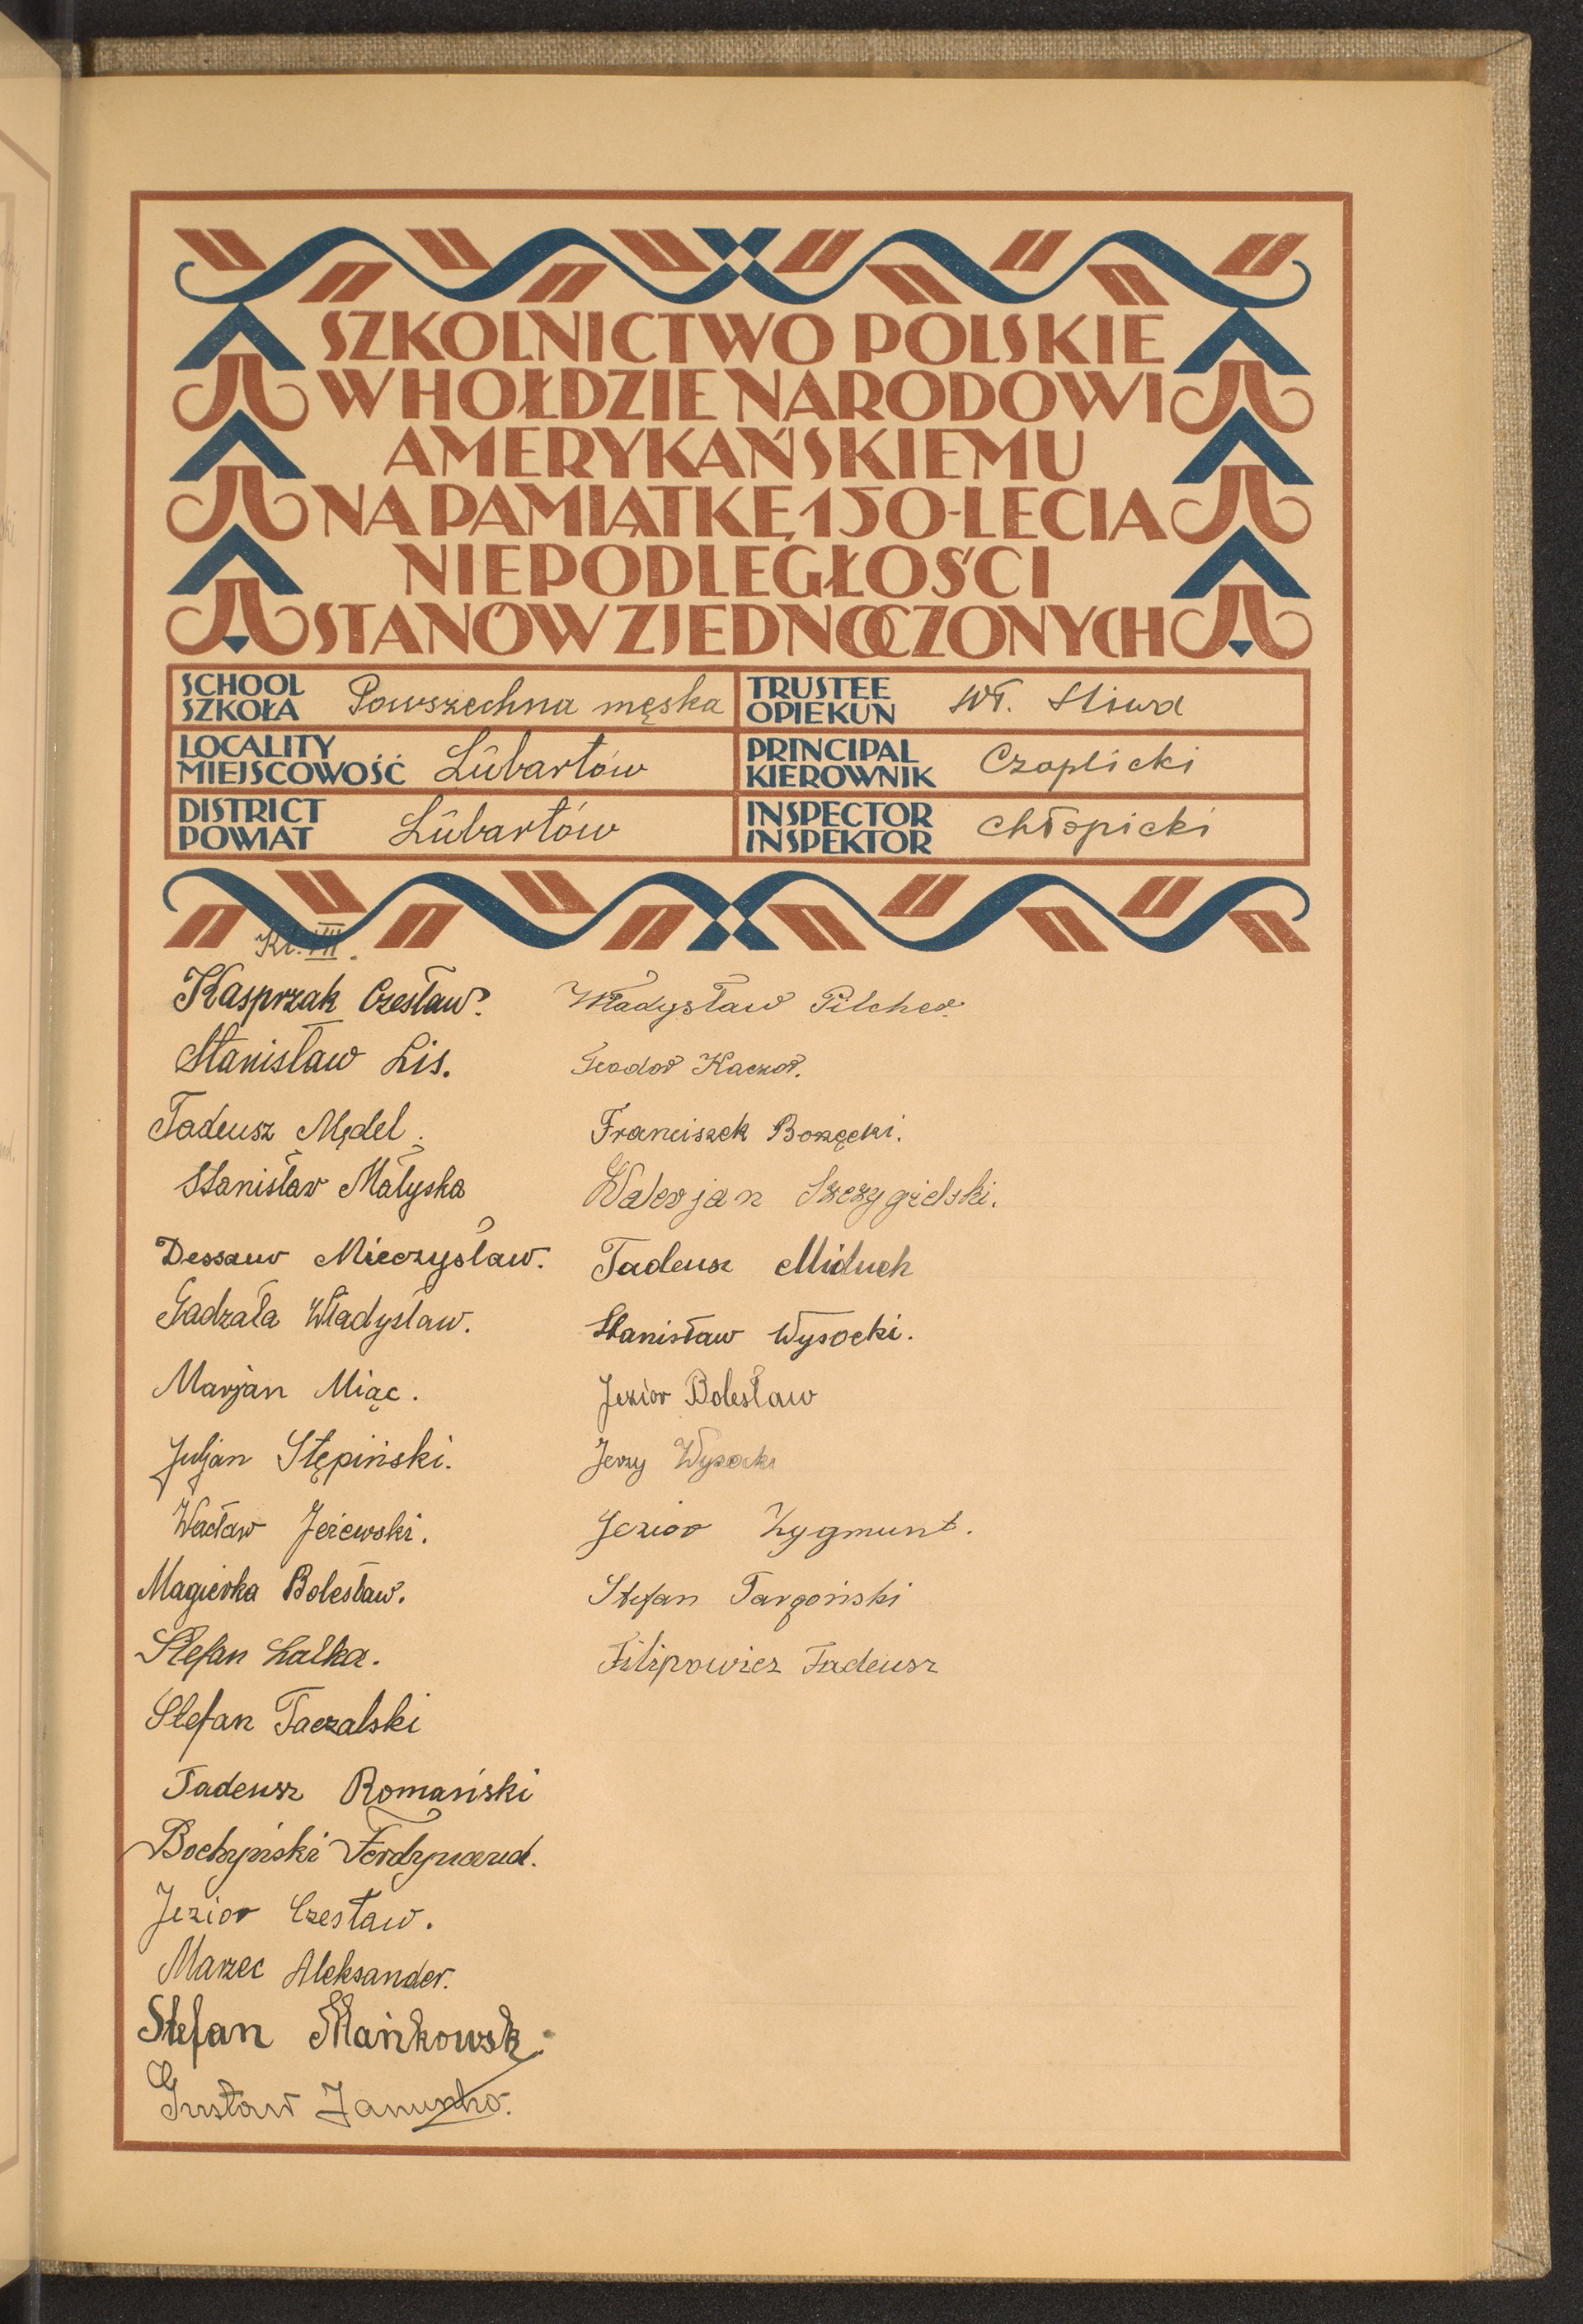 SZKOLNICTWO POLSKIE
W HOŁDZIE NARODOWI
AMERYKAŃSKIEMU
NA PAMIĄTKĘ 150-LECIA
NIEPODLEGŁOŚCI
STANÓW ZJEDNOCZONYCH
SCHOOL
SZKOŁA
Powszechna męska
TRUSTEE
OPIEKUN
Wł. Śliwa
LOCALITY
MIEJSCOWOŚĆ
Lubartów
PRINCIPAL
KIEROWNIK
Czaplicki
DISTRICT
POWIAT
Lubartów
INSPECTOR
INSPEKTOR
Chłopicki
Kl. VII.
Kasprzak Czesław.
Stanisław Lis.
Tadeusz Mędel.
Stanisław Małyska
Dessauw Mieczysław.
Gadzała Władysław.
Marjan Miąc.
Juljan Stępiński.
Wacław Jeżewski.
Magierka Bolesław.
Stefan Lalka.
Stefan Taczalski
Tadeusz Romański
Bochyński Ferdynand.
Jezior Czesław.
Marzec Aleksander.
Stefan Mańkowski
Gustaw Januszko.
Władysław Pilcher.
Teodor Kaczor.
Franciszek Borzęcki.
Walerjan Szczygielski.
Tadeusz Miduch
Stanisław Wysocki.
Jezior Bolesław
Jerzy Wysocki
Jezior Zygmunt.
Stefan Targoński
Filipowicz Tadeusz